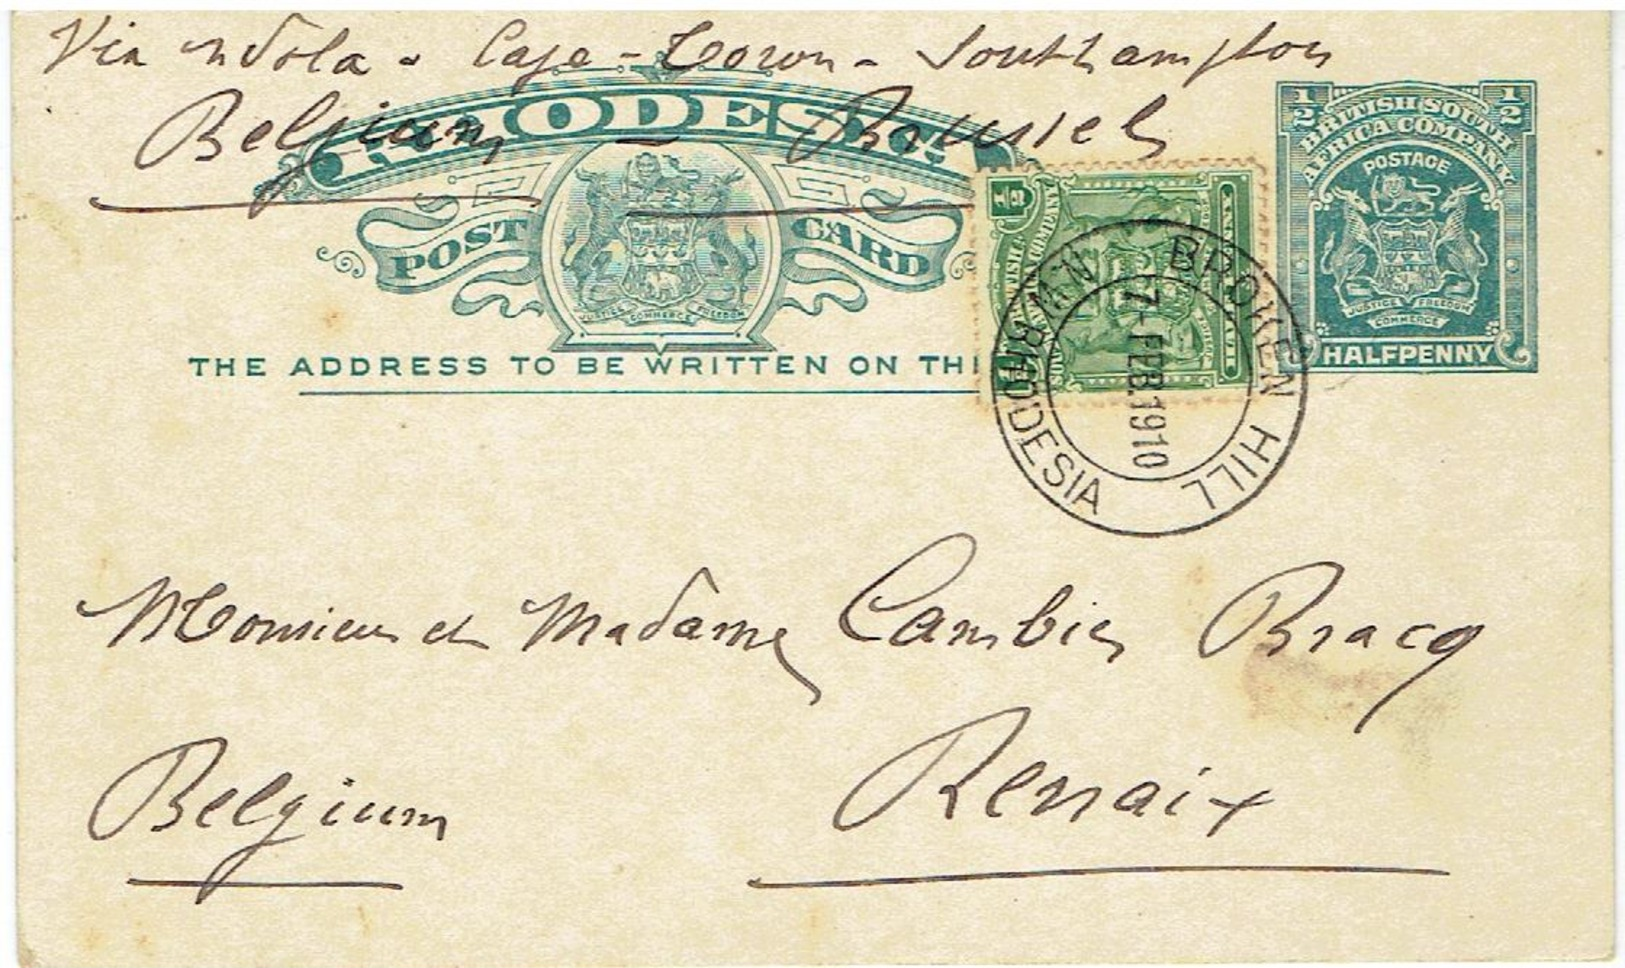 Via Ndola - Cape-Town - Southampton
Belgium - Brussels
RHODESIA
POST CARD
JUSTICE COMMERCE FREEDOM
THE ADDRESS TO BE WRITTEN ON THI
1/2 1/2
BRITISH SOUTH
AFRICA COMPANY
POSTAGE
JUSTICE FREEDOM
COMMERCE
HALFPENNY
1/2
BROKEN HILL
7- FEB.1910
N.W. RHODESIA
Monsieur et Madame Cambier Bracq
Renaix
Belgium